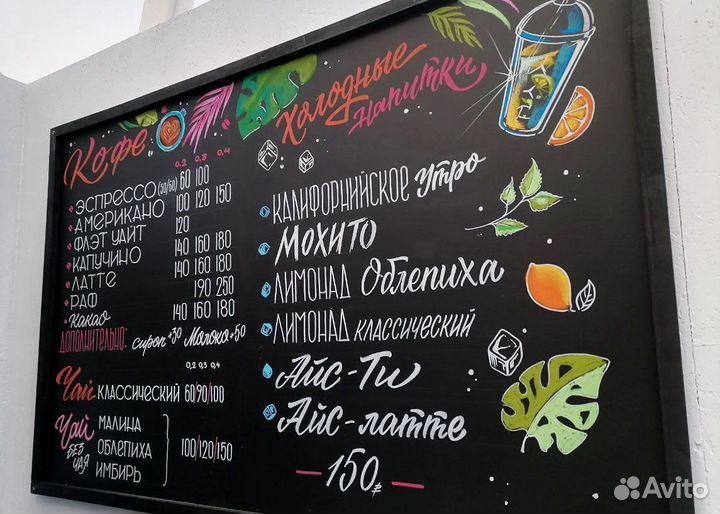 Кофе
0,2 0,3 0,4
ЭСПРЕССО (30/60) 60 100
АМЕРИКАНО 100 120 150
ФЛЭТ УАЙТ 120
КАПУЧИНО 140 160 180
ЛАТТЕ 140 160 180
РАФ 190 250
Какао 140 160 180
ДОПОЛНИТЕЛЬНО: сироп +30 Молоко +50
0,2 0,3 0,4
Чай КЛАССИЧЕСКИЙ 60/90/100
Чай БЕЗ ЧАЯ
МАЛИНА
ОБЛЕПИХА
ИМБИРЬ
100/120/150
Холодные
Напитки
КАЛИФОРНИЙСКОЕ Утро
МОХИТО
ЛИМОНАД Облепиха
ЛИМОНАД КЛАССИЧЕСКИЙ
Айс-Ти
Айс-латте
— 150₽ —
Avito